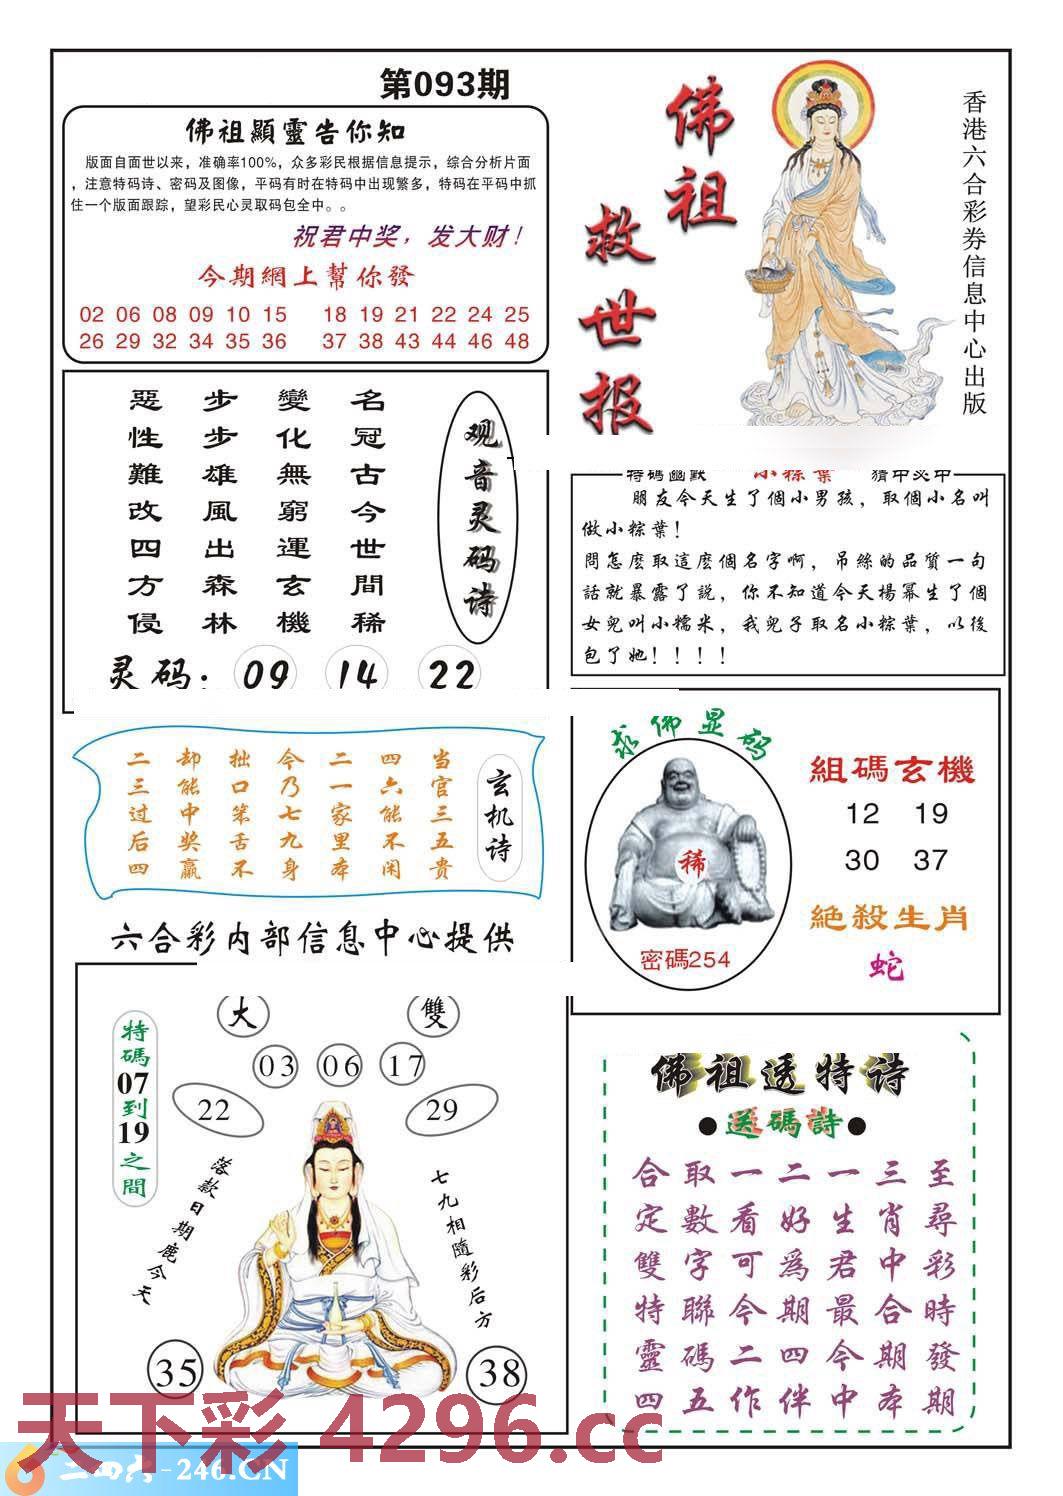 第093期
佛祖顯靈告你知
版面自面世以来，准确率100%，众多彩民根据信息提示，综合分析片面
，注意特码诗、密码及图像，平码有时在特码中出现繁多，特码在平码中抓
住一个版面跟踪，望彩民心灵取码包全中。。
祝君中奖，发大财！
今期網上幫你發
02 06 08 09 10 15 18 19 21 22 24 25
26 29 32 34 35 36 37 38 43 44 46 48
佛祖
救世报
香港六合彩券信息中心出版
观音灵码诗
名冠古今世間稀
變化無窮運玄機
步步雄風出森林
惡性難改四方侵
灵码：09 14 22
特碼幽默 小粽葉 猜中奖中
朋友今天生了個小男孩，取個小名叫
做小粽葉！
問怎麼取這麼個名字啊，吊絲的品質一句
話就暴露了説，你不知道今天楊冪生了個
女兒叫小糯米，我兒子取名小粽葉，以後
包了她！！！！
玄机诗
当官三五贵
四六能不闲
二一家里本
今乃七九身
拙口笨舌不
却能中奖赢
二三过后四
六合彩内部信息中心提供
求佛显码
稀
密碼254
組碼玄機
12 19
30 37
絶殺生肖
蛇
大 雙
特碼07到19之間
03 06 17
22 29
落款日期鹿今天
七九相隨彩后方
35 38
佛祖透特诗
●送碼詩●
至尋彩時發期
三肖中合期本
一生君最今中
二好為期四伴
一看可今二作
取數字聯碼五
合定雙特靈四
天下彩 4296.cc
二四六-246.CN